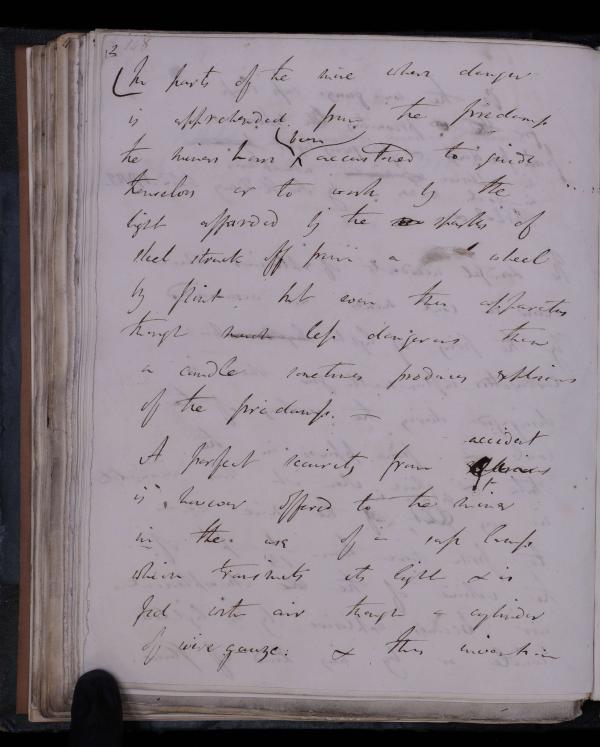 3 148
In parts of the mine where danger
is apprehended from the firedamp
been
the miners have accustomed to guide
themselves or to work by the
light afforded by the sparks of
steel struck off from a wheel
by flint. but even this apparatus
though much less dangerous than
a candle sometimes produces explosions
of the firedamp. —
accident
A perfect security from explosions
is however offered to the miner
in the use of a safe lamp
which transmits its light & is
fed with air through a cylinder
of wire gauze: & this invention